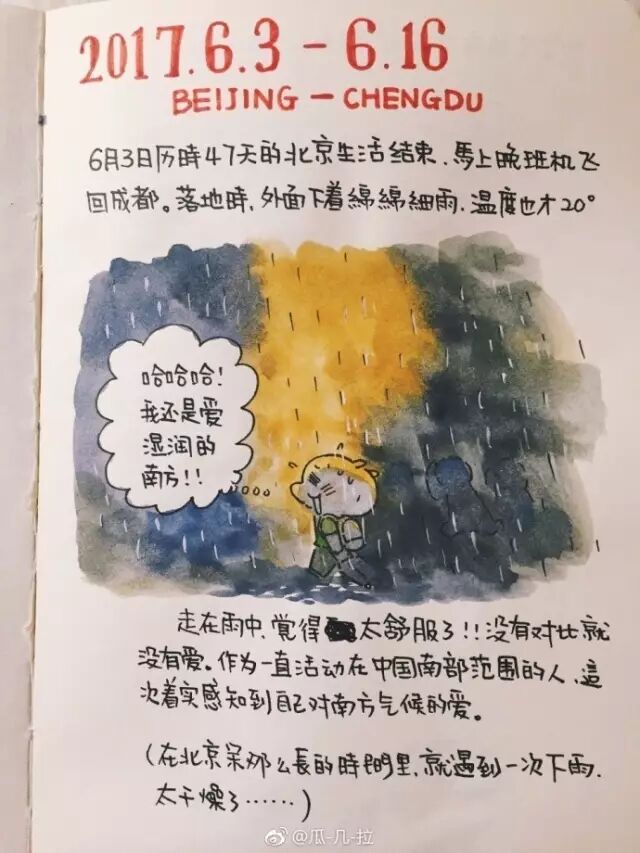 2017.6.3 - 6.16
BEIJING — CHENGDU
6月3日历時47天的北京生活结束，馬上晚班机飞
回成都。落地時，外面下着綿綿細雨，温度也才20°
哈哈哈！
我还是爱
湿润的
南方！！
走在雨中，覺得太舒服了！！没有对比就
没有爱。作为一直活动在中国南部范围的人，這
次着实感知到自己对南方气候的爱。
（在北京呆那么長的時間里，就遇到一次下雨，
太干燥了……）
@瓜-几-拉